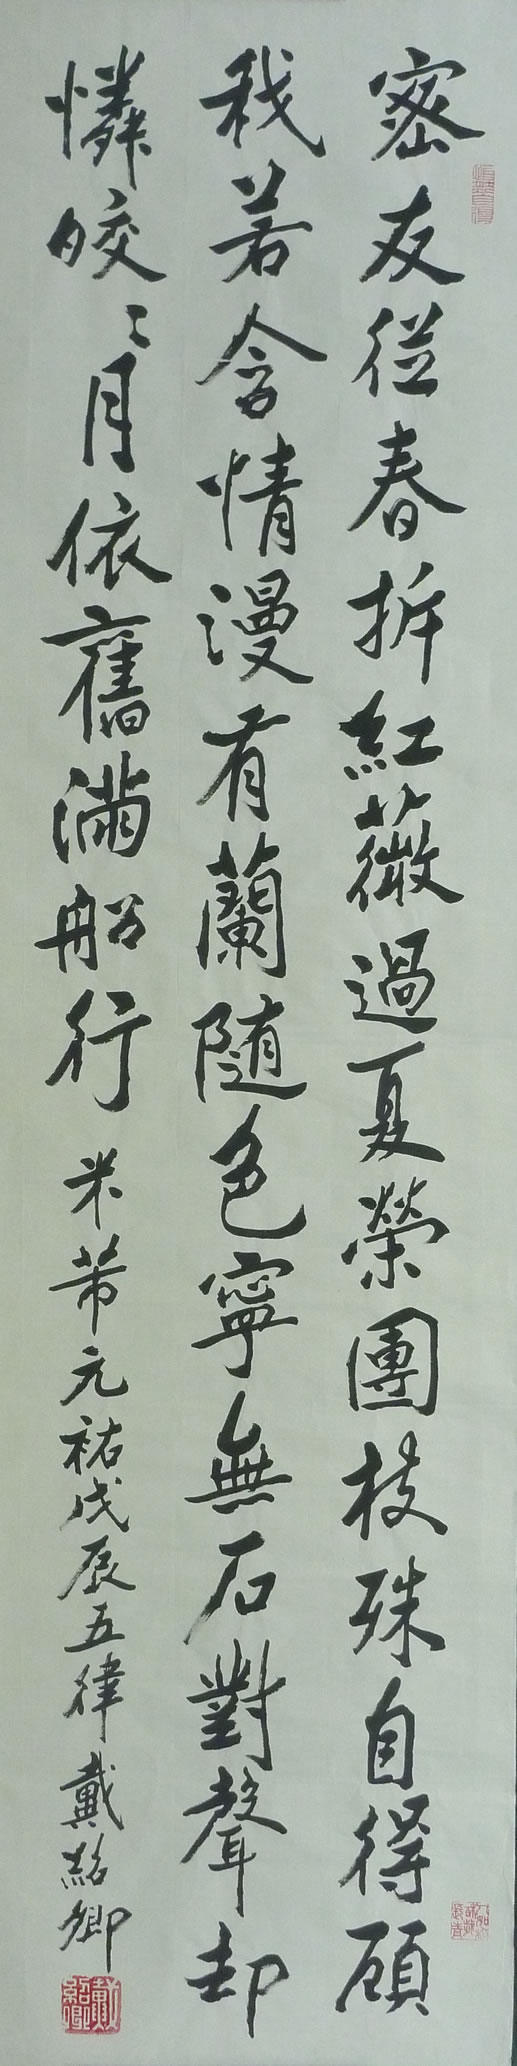 密友從春拆紅薇過夏榮團枝殊自得顧
我若含情漫有蘭随色寧無石對聲却
憐皎〻月依舊滿船行 米芾元祐戊辰五律 戴紹卿
戴紹卿